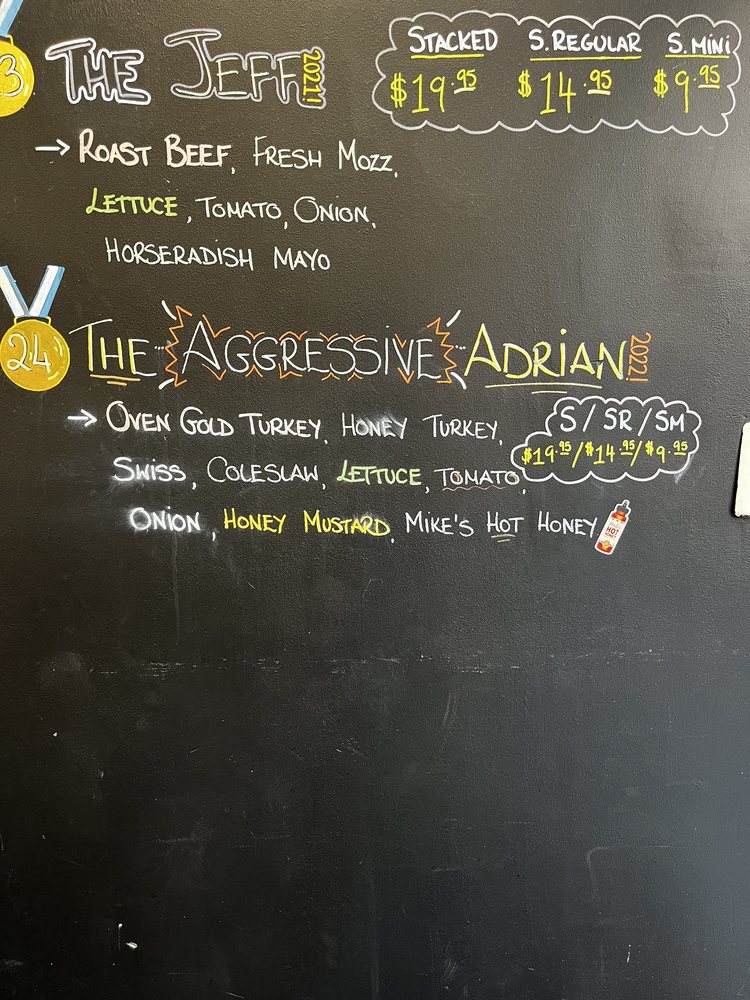 3 THE JEFF 2021!
STACKED S. REGULAR S. MINI
$19.95 $14.95 $9.95
→ ROAST BEEF, FRESH MOZZ,
LETTUCE, TOMATO, ONION,
HORSERADISH MAYO
24 THE AGGRESSIVE ADRIAN 2022!
→ OVEN GOLD TURKEY, HONEY TURKEY,
S / SR / SM
$19.95/$14.95/$9.95
SWISS, COLESLAW, LETTUCE, TOMATO,
ONION, HONEY MUSTARD, MIKE'S HOT HONEY
HOT